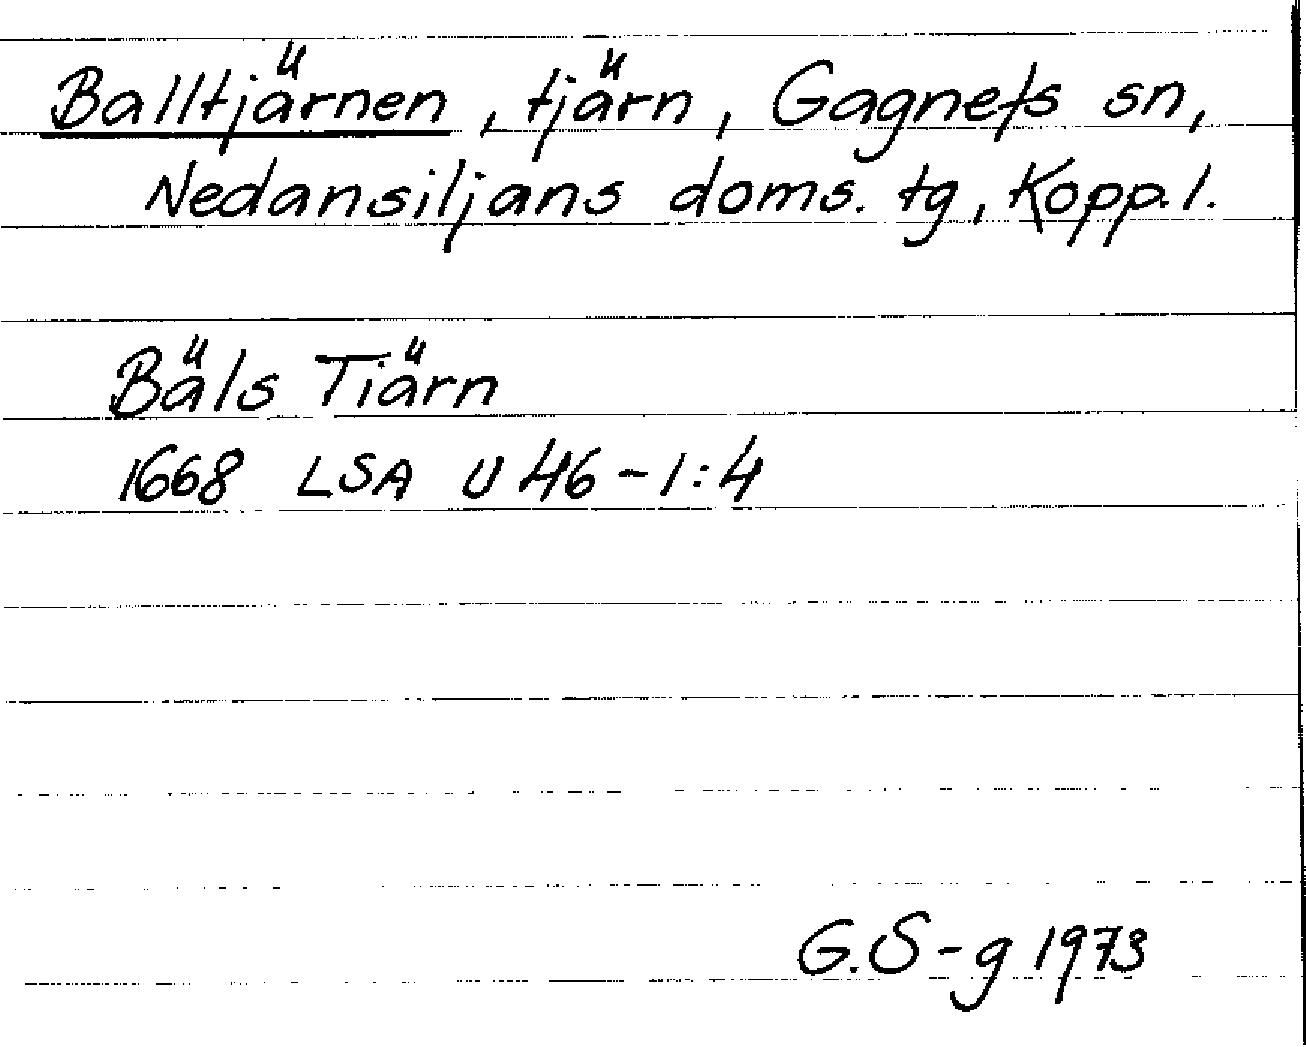 Balltjärnen, tjärn, Gagnefs sn,
Nedansiljans doms. tg, Kopp.l.
Bäls Tiärn
1668 LSA U 46-1:4
G.S-g 1973